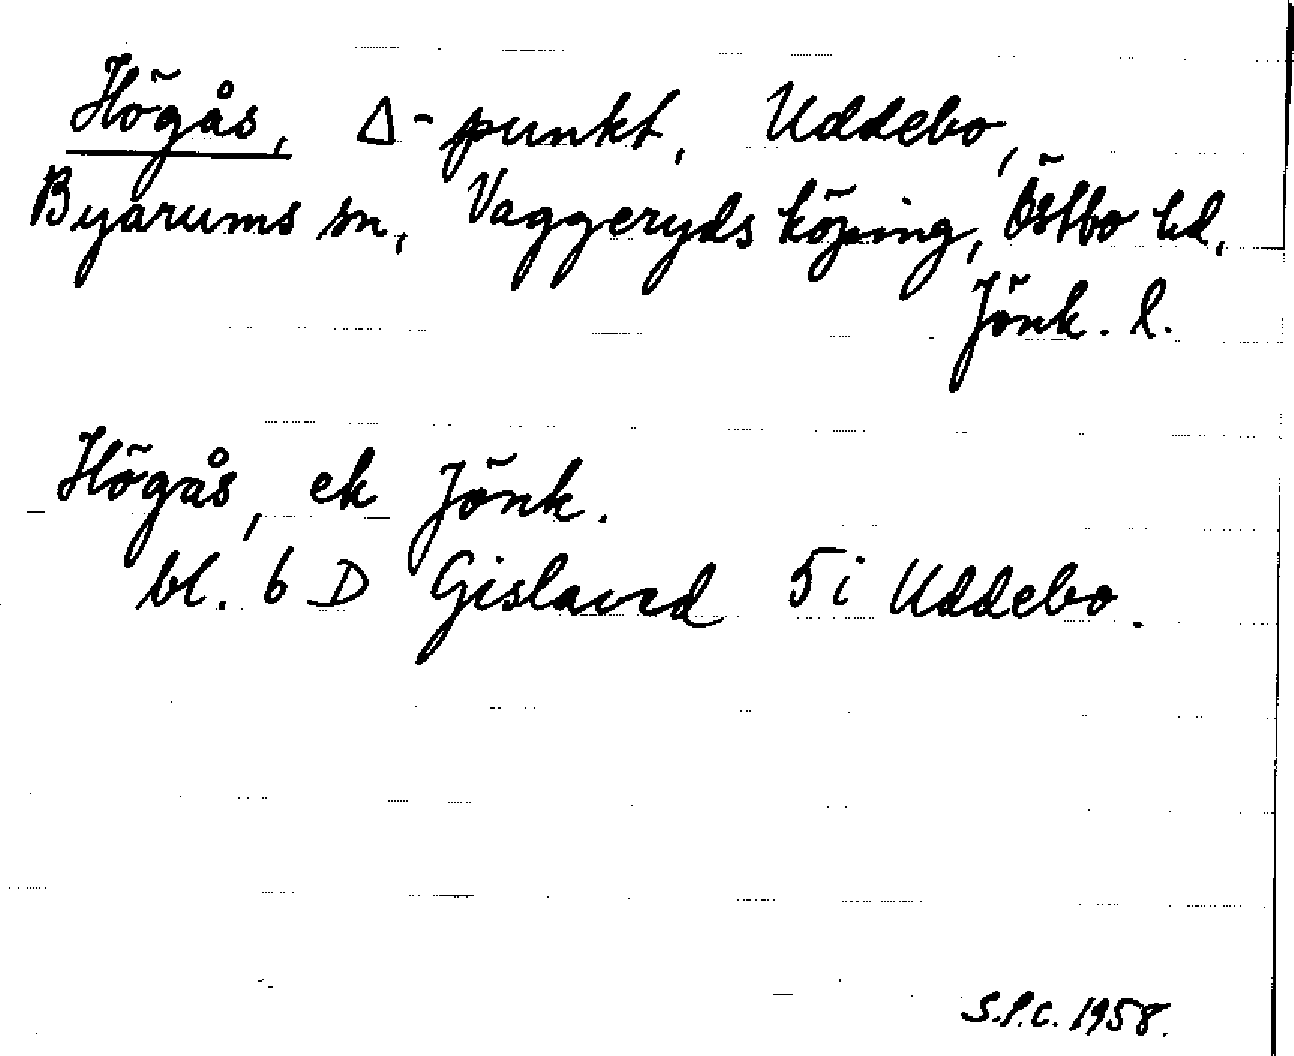 Högås, Δ-punkt, Uddebo,
Byarums sn, Vaggeryds köping, Östbo hd,
Jönk. l.
Högås, ek Jönk.
bl. 6 D Gislaved 5i Uddebo.
S.P.C. 1958.